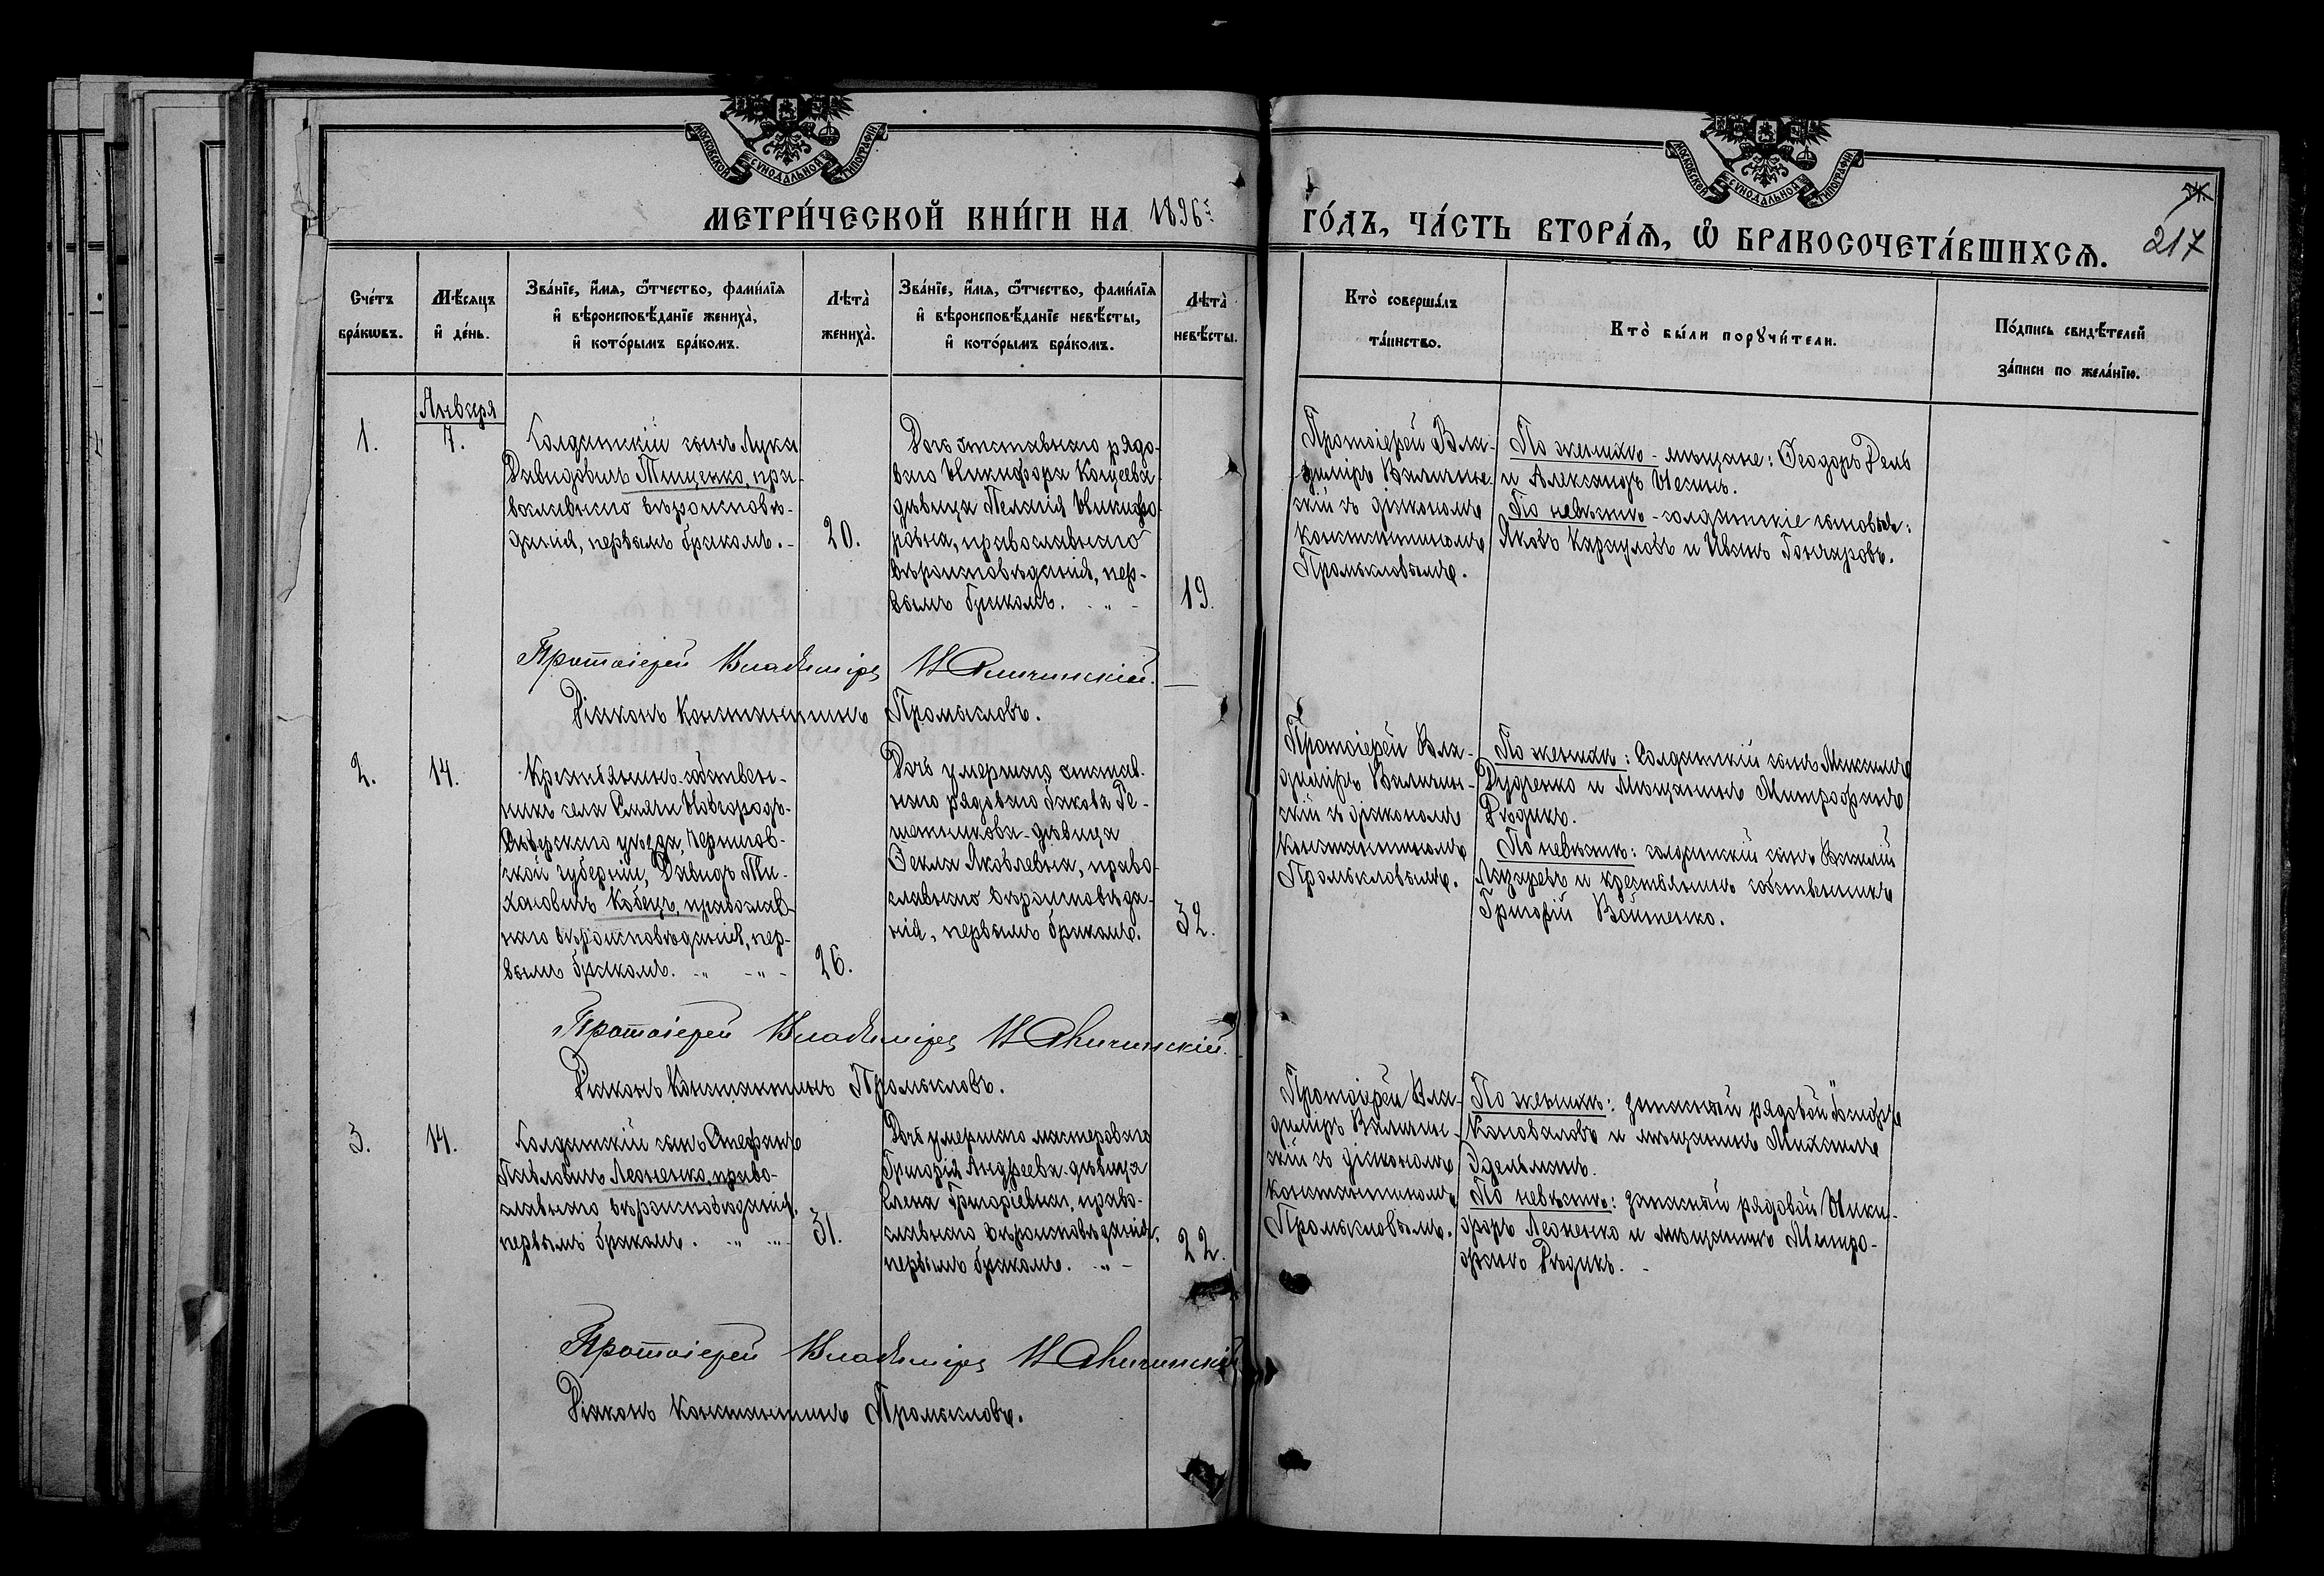 МОСКОВСКОЙ СѴНОДАЛЬНОЙ ТИПОГРАФІИ
МОСКОВСКОЙ СѴНОДАЛЬНОЙ ТИПОГРАФІИ
МЕТРИ́ЧЕСКОЙ КНИ́ГИ НА 1896й
ГО́ДЪ, ЧА́СТЬ ВТОРА́Ѧ, Ѡ҆ БРАКОСОЧЕТА́ВШИХСѦ.
217
Сче́тъ
бра́кѡвъ.
Мѣ́сяцъ
и҆ де́нь.
Зва́нїе, и҆́мя, ѻ҆́тчество, фами́лїя
и҆ вѣроисповѣ́данїе жениха̀,
и҆ кото́рымъ бра́комъ.
Лѣта̀
жениха̀.
Зва́нїе, и҆́мя, ѻ҆́тчество, фами́лїя
и҆ вѣроисповѣ́данїе невѣ́сты,
и҆ кото́рымъ бра́комъ.
Лѣта̀
невѣ́сты.
Кто̀ соверша́лъ
та́инство.
Кто̀ бы́ли порꙋчи́тели.
По́дпись свидѣ́телей
за́писи по жела́нїю.
Января
1.
7.
Солдатскій сынъ Лука
Давидовичъ Тищенко, пра-
вославнаго вѣроисповѣ-
данія, первымъ бракомъ. -
20.
Дочь отставнаго рядо-
ваго Никифора Кощеева
дѣвица Пелагія Никифо-
ровна, православнаго
вѣроисповѣданія, пер-
вымъ бракомъ. „ -
19.
Протоіерей Вла-
диміръ
скій съ діакономъ
Константиномъ
Промысловымъ.
По женихѣ - мѣщане: Ѳеодоръ Рель
и Александръ
По невѣстѣ - солдатскіе сыновья:
Яковъ Караулов и Иванъ Гончаровъ.
Протоіерей Владиміръ
Діаконъ Константинъ Промысловъ.
2.
14.
Крестьянинъ-собствен-
никъ села Новгородъ-
Сѣверскаго уѣзда, Чернигов-
ской губерніи, Давидъ Ти-
хоновичъ Кобецъ, православ-
наго вѣроисповѣданія, пер-
вымъ бракомъ. „ - „ -
26.
Дочь умершаго отстав-
наго рядоваго Якова Ре-
шетникова - дѣвица
Ѳекла Яковлевна, право-
славнаго вѣроисповѣда-
нія, первымъ бракомъ.
32.
Протоіерей Вла-
диміръ
скій съ діакономъ
Константиномъ
Промысловымъ.
По женихѣ: Солдатскій сынъ Максимъ
Дудченко и мѣщанинъ Митрофанъ
Рѣдикъ.
По невѣстѣ: солдатскій сынъ Василій
Лазаревъ и крестьянинъ собственникъ
Григорій Войтенко.
Протоіерей Владиміръ
Діаконъ Константинъ Промысловъ.
3.
14.
Солдатскій сынъ Стефанъ
Павловичъ Леоненко, право-
славнаго вѣроисповѣданія,
первымъ бракомъ. „ „ -
31.
Дочь умершаго мастероваго
Григорія Андреева - дѣвица
Елена Григоріевна, право-
славнаго вѣроисповѣданія,
первымъ бракомъ. „ -
22.
Протоіерей Вла-
диміръ
скій съ діакономъ
Константиномъ
Промысловымъ.
По женихѣ: запасный рядовой
Коновалов и мѣщанинъ Михаилъ
Эдельманъ.
По невѣстѣ: запасный рядовой Ники-
форъ Леоненко и мѣщанинъ Митро-
фанъ Рѣдикъ. -
Протоіерей Владиміръ
Діаконъ Константинъ Промысловъ.